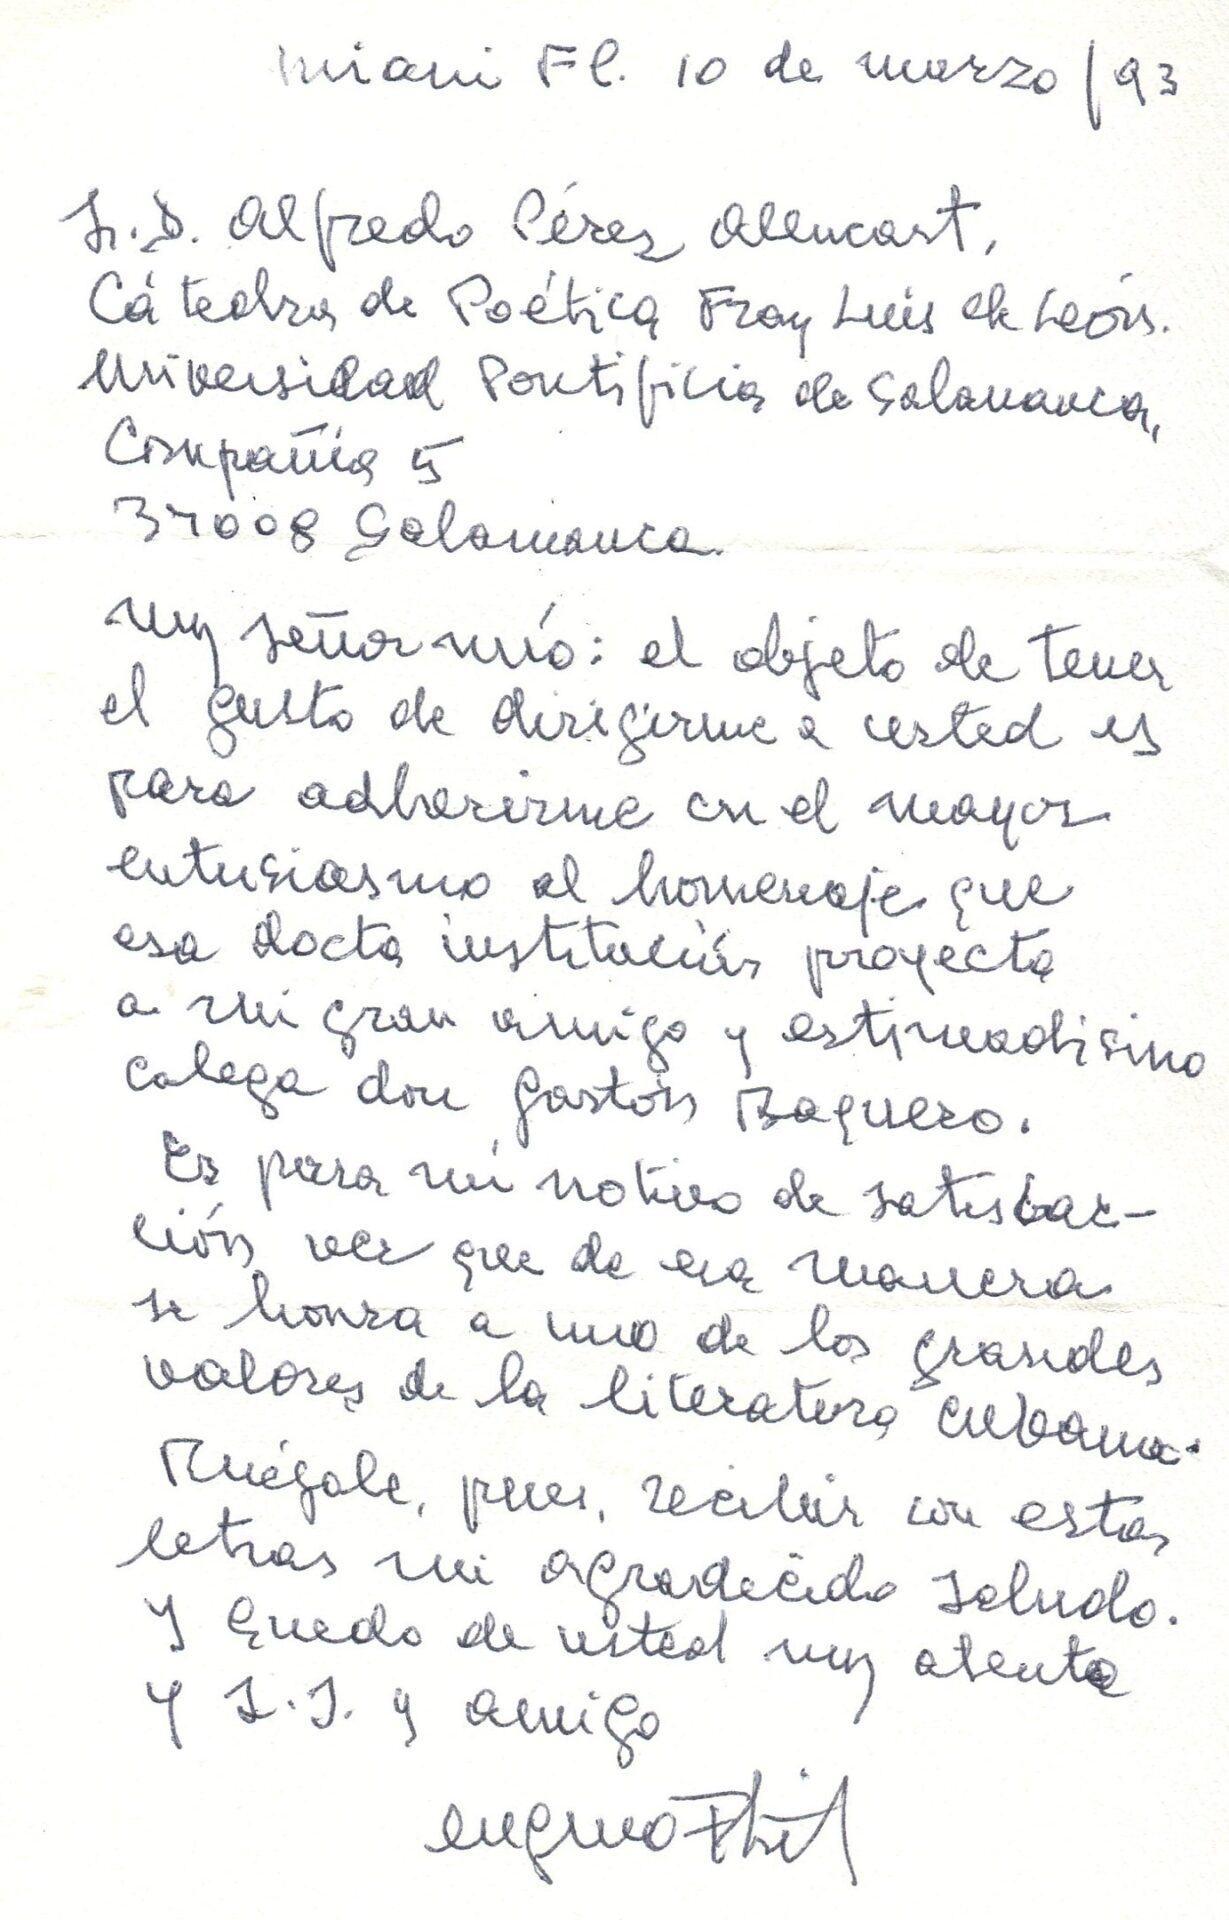 Miami Fl. 10 de marzo/93
Sr. D. Alfredo Pérez Alencart,
Cátedra de Poética Fray Luis de León.
Universidad Pontificia de Salamanca,
Compañía 5
37008 Salamanca.
Muy señor mío: el objeto de tener
el gusto de dirigirme a usted es
para adherirme con el mayor
entusiasmo al homenaje que
esa docta institución proyecta
a mi gran amigo y estimadísimo
colega don Gastón Baquero.
Es para mí motivo de satisfac-
ción ver que de esa manera
se honra a uno de los grandes
valores de la literatura cubana.
Ruégole, pues, recibir con estas
letras mi agradecido saludo.
Y quedo de usted muy atento
y S.S. y amigo
Eugenio Florit